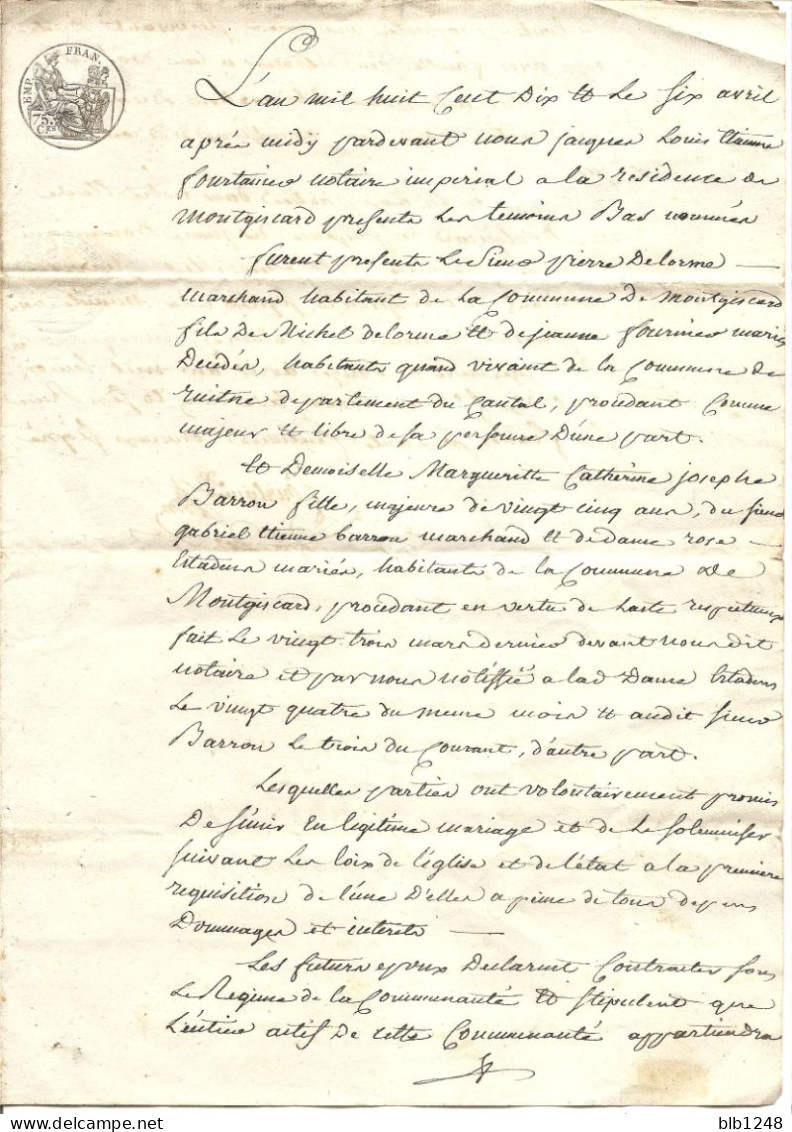 EMP. FRAN.
75.
CES
L'an mil huit Cent Dix et le Six avril
après midy pardevant nous jacques Louis Etienne
fourtanier notaire imperial a la residence de
Montgiscard presents les temoins Bas nommés
furent presents le Sieur pierre Delorme —
marchand habitant de la Commune De Montgiscard
fils De Michel delorme et de jeanne fournier mariés
Decédés, habitants quand vivaint de la Commune de
departement du Cantal, procedant Comme
majeur et libre de sa personne D'une part.
Et Demoiselle Margueritte Catherine josephe
Barron fille, majeure de vingt cinq ans, du sieur
gabriel Etienne barron marchand et de dame rose —
Estadens mariés, habitants de la Commune de
Montgiscard, procedant en vertu de l'acte respectueux
fait le vingt trois mars dernier devant nous dit
notaire et par nous notiffié a lad Dame Estadens
le vingt quatre du meme mois et audit sieur
Barron le trois du Courant, d'autre part.
Lesquelles parties ont volontairement promis
De s'unir En legitime mariage et de le solemniser
suivant les loix de l'église et de l'état a la premiere
requisition de l'une D'elles a peine de tous depens
Dommages et interets —
Les futurs epoux Declarent Contracter sous
le Regime de la Communauté et stipulent que
l'entier actif De cette Communauté appartiendra
blb1248